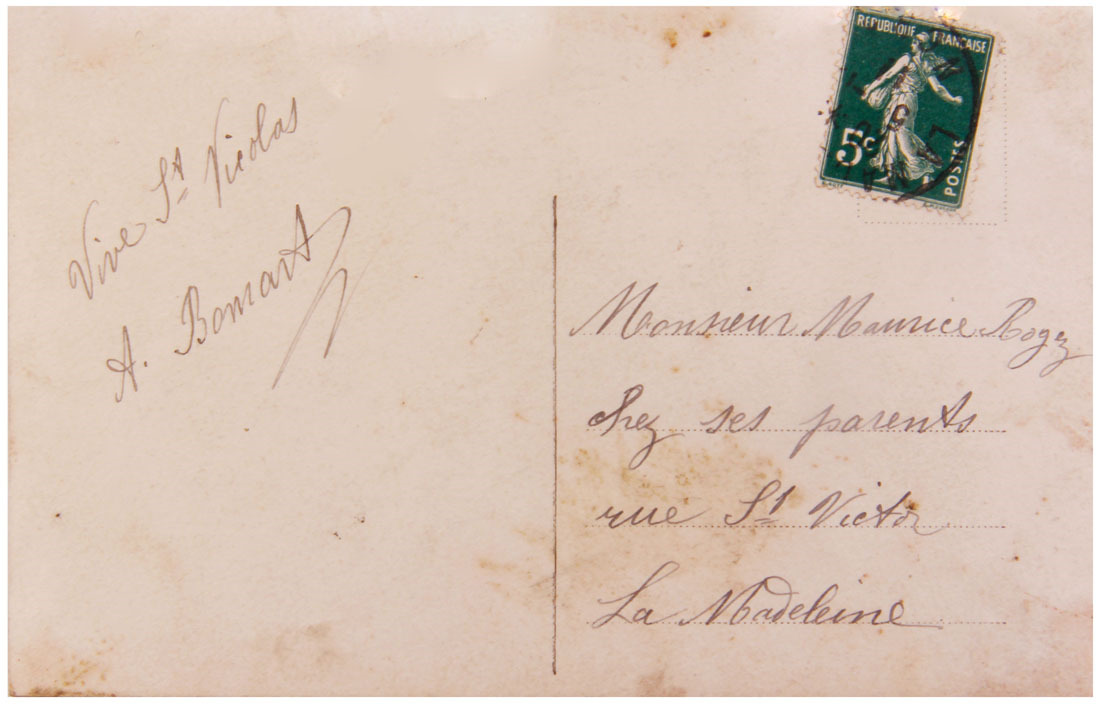 Vive St Nicolas
A. Bonvart
REPUBLIQUE FRANÇAISE
5c
POSTES
Monsieur Maurice Rogez
chez ses parents
rue St Victor
La Madeleine